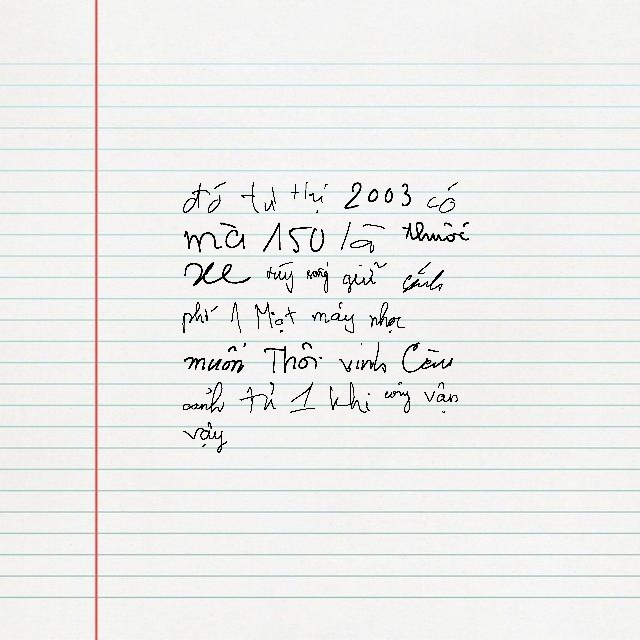 đó tư thị 2003 có
mà 150 là thuốc
xe vùng song giữ cánh
phí 1 Mạt máy nhạc
muốn Thôi vinh Cầu
oanh từ 1 khi công vận
vậy